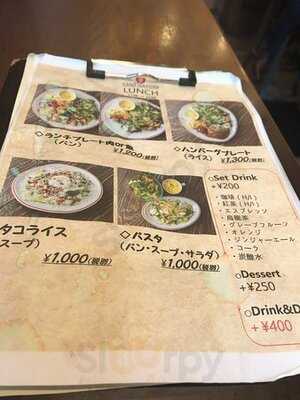 LUNCH
◇ランチプレート肉or魚
(パン)
¥1,200(税別)
◇ハンバーグプレート
(ライス)
¥1,300(税別)
タコライス
スープ)
¥1,000(税別)
◇パスタ
(パン・スープ・サラダ)
¥1,000(税別)
○Set Drink
+¥200
・珈琲(H/I)
・紅茶(H/I)
・エスプレッソ
・烏龍茶
・グレープフルーツ
・オレンジ
・ジンジャーエール
・コーラ
・炭酸水
○Dessert
+¥250
○Drink&D
+¥400